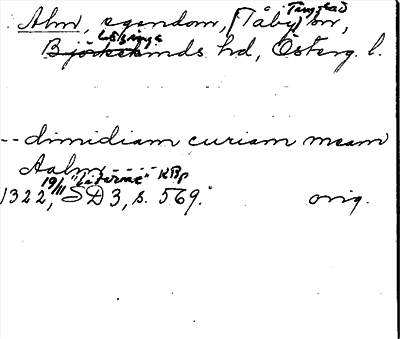 Tingstad
Alm, egendom, (Täby) sn,
Lösings
Björkekinds hd, Österg. l.
-- dimidiam curiam meam
Aalm ----
19/11 KBp
1322, SD 3, s. 569. orig.